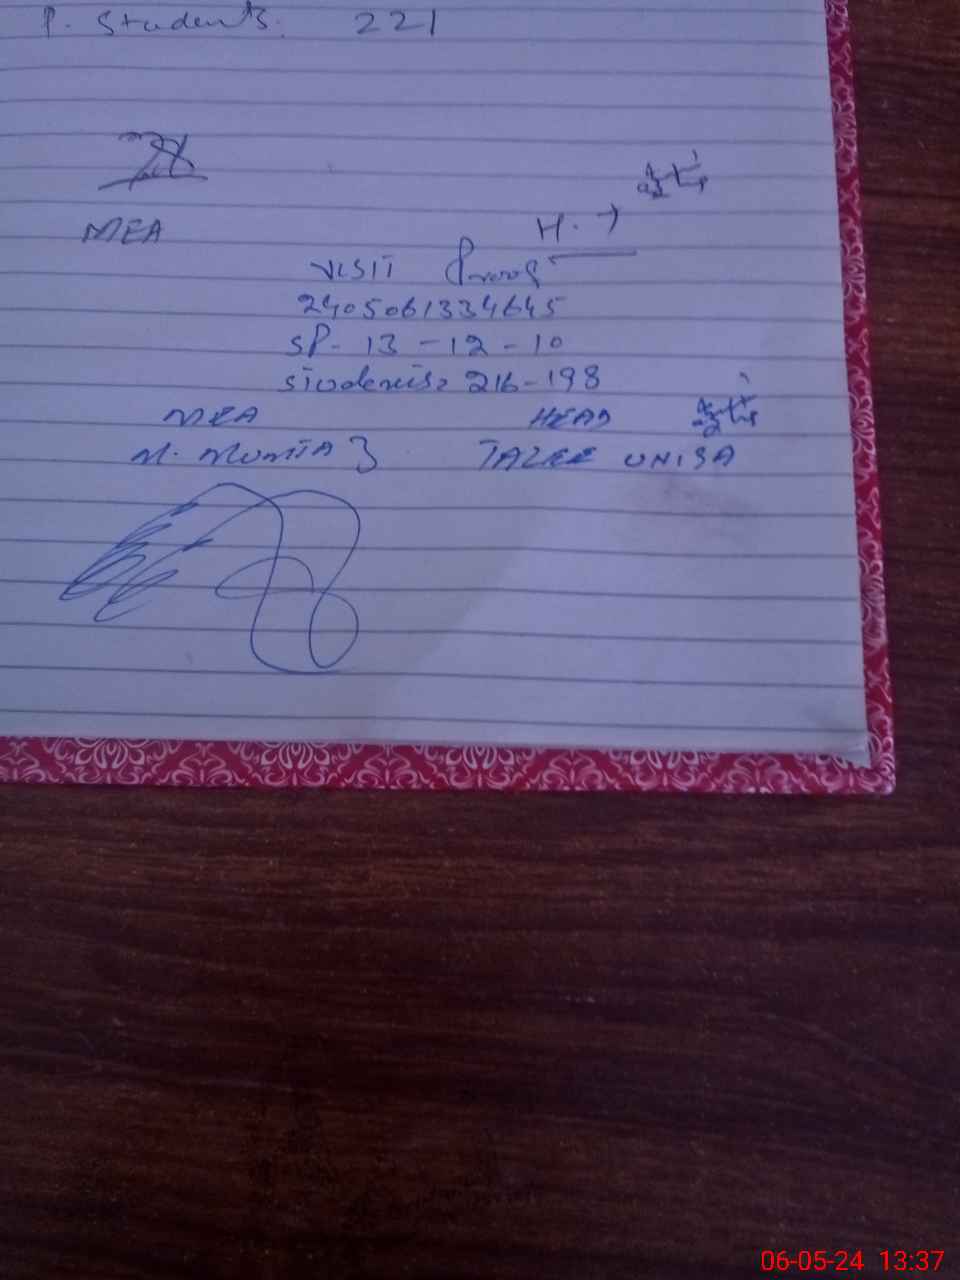 P. Students. 221
MEA
H.T
VISIT Proof
2405061334645
SP- 13 - 12 - 10
Students: 216-198
MEA HEAD
M. MUMTAZ TAZEE UNISA
06-05-24 13:37